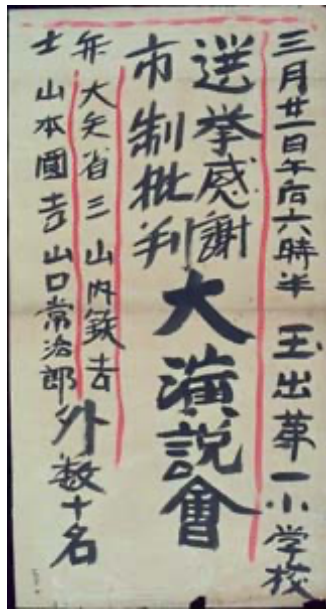 三月廿一日午后六時半 玉出第一小学校
選挙感謝
市制批判
大演説會
弁 大矢省三 山内鉄吉
士 山本國吉 山口常治郎
外数十名